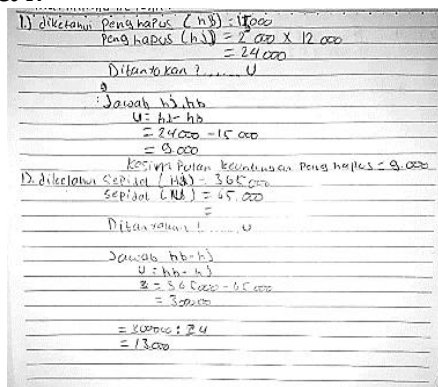 1.) diketahui Penghapus (hb) : 15000
Penghapus (hj) = 2000 X 12 000
= 24000
Ditanyakan ? ...... U
: Jawab hj.hb
U = hJ - hb
= 24000 - 15 000
= 9.000
Kesimpulan keuntungan Penghapus = 9.000
12. diketahui Sepidol = 365.000
Sepidol = 65.000
=
Ditanyakan ! ...... U
Jawab hb-hj
U = hb - hj
= 365000 - 65 000
= 300000
= 300000 : 24
= 13.000